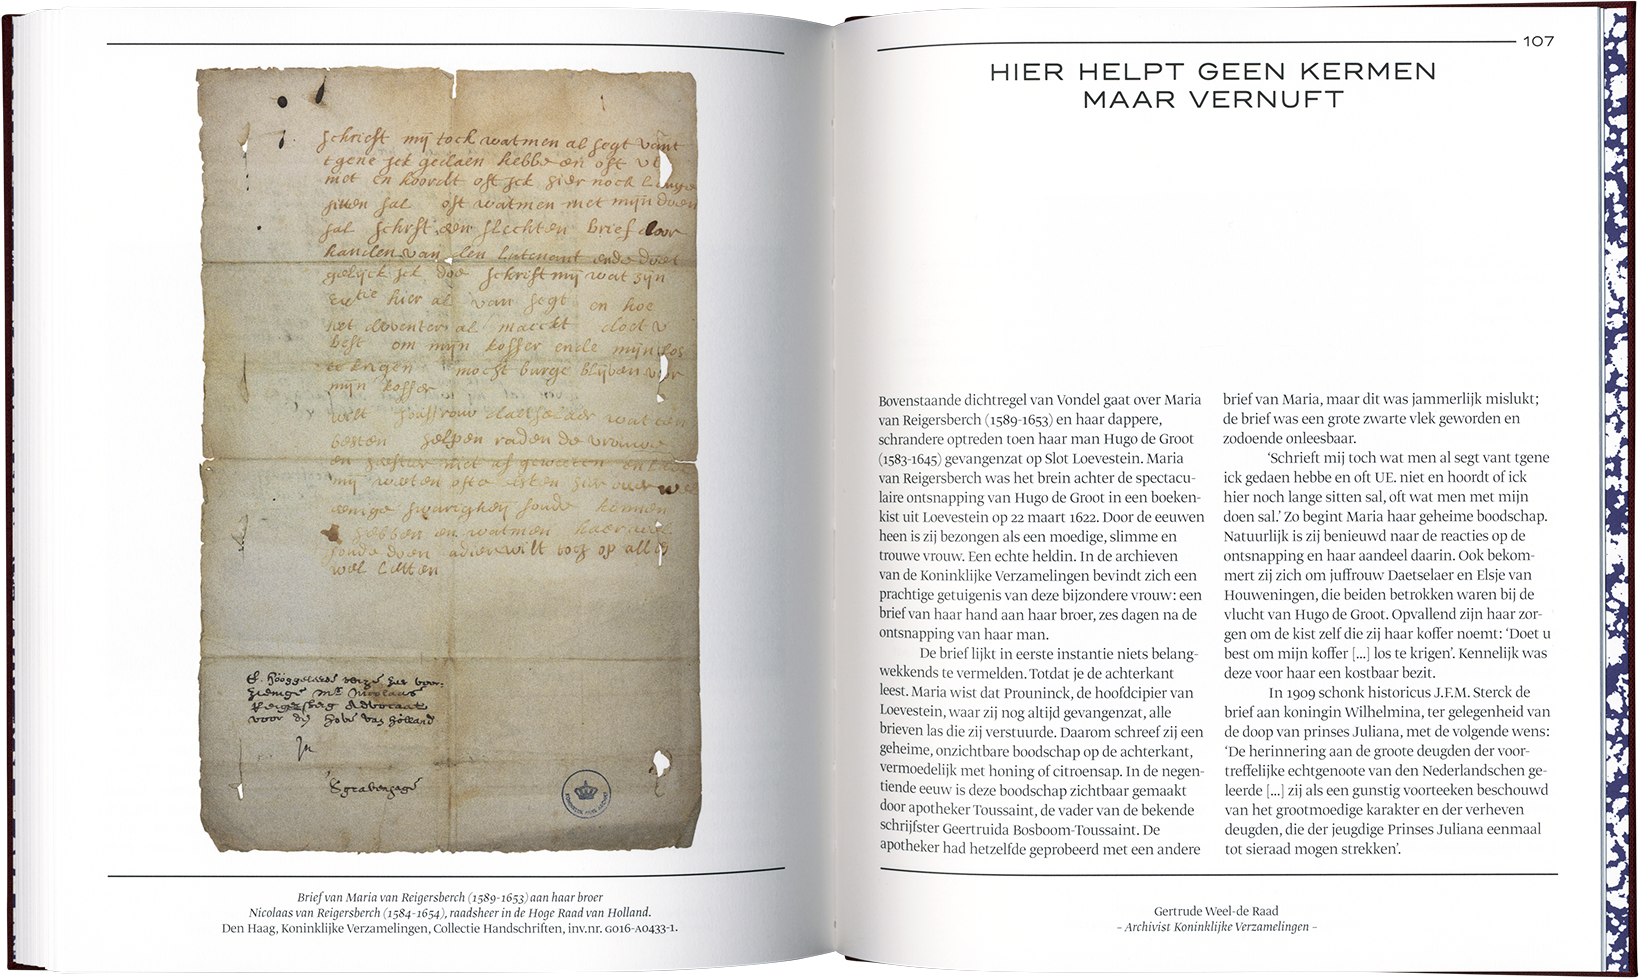 schrieft mij toch wat men al segt vant
tgene ick gedaen hebbe en oft
niet en hoordt oft ick hier noch
sitten sal oft wat men met mijn doen
sal schrift een slechten brief door
handen van den lutenant ende doet
gelijck ick doe schrift mij wat zijn
hier al van segt en hoe
het deventer al maeckt doet u
best om mijn koffer ende mijn
te krigen mocht burge blijven voor
mijn koffer
wilt joufrouw daetselaer wat ten
besten helpen raden de vrouwe
en
mij weeten ofte elsten hier over
eenige swarigheij soude konnen
hebben en wat men haer
soude doen adie wilt toch op alles
wel letten
E. hooggeleerde wijze
Mr. Nicolaas
Reigersberg Advocaat
voor den hove van holland
In
's gravenhage
Brief van Maria van Reigersberch (1589-1653) aan haar broer
Nicolaas van Reigersberch (1584-1654), raadsheer in de Hoge Raad van Holland.
Den Haag, Koninklijke Verzamelingen, Collectie Handschriften, inv.nr. G016-A0433-1.
107
HIER HELPT GEEN KERMEN
MAAR VERNUFT
Bovenstaande dichtregel van Vondel gaat over Maria
van Reigersberch (1589-1653) en haar dappere,
schrandere optreden toen haar man Hugo de Groot
(1583-1645) gevangenzat op Slot Loevestein. Maria
van Reigersberch was het brein achter de spectacu-
laire ontsnapping van Hugo de Groot in een boeken-
kist uit Loevestein op 22 maart 1622. Door de eeuwen
heen is zij bezongen als een moedige, slimme en
trouwe vrouw. Een echte heldin. In de archieven
van de Koninklijke Verzamelingen bevindt zich een
prachtige getuigenis van deze bijzondere vrouw: een
brief van haar hand aan haar broer, zes dagen na de
ontsnapping van haar man.
De brief lijkt in eerste instantie niets belang-
wekkends te vermelden. Totdat je de achterkant
leest. Maria wist dat Prouninck, de hoofdcipier van
Loevestein, waar zij nog altijd gevangenzat, alle
brieven las die zij verstuurde. Daarom schreef zij een
geheime, onzichtbare boodschap op de achterkant,
vermoedelijk met honing of citroensap. In de negen-
tiende eeuw is deze boodschap zichtbaar gemaakt
door apotheker Toussaint, de vader van de bekende
schrijfster Geertruida Bosboom-Toussaint. De
apotheker had hetzelfde geprobeerd met een andere
brief van Maria, maar dit was jammerlijk mislukt;
de brief was een grote zwarte vlek geworden en
zodoende onleesbaar.
'Schrieft mij toch wat men al segt vant tgene
ick gedaen hebbe en oft UE. niet en hoordt of ick
hier noch lange sitten sal, oft wat men met mijn
doen sal.' Zo begint Maria haar geheime boodschap.
Natuurlijk is zij benieuwd naar de reacties op de
ontsnapping en haar aandeel daarin. Ook bekom-
mert zij zich om juffrouw Daetselaer en Elsje van
Houweningen, die beiden betrokken waren bij de
vlucht van Hugo de Groot. Opvallend zijn haar zor-
gen om de kist zelf die zij haar koffer noemt: 'Doet u
best om mijn koffer [...] los te krigen'. Kennelijk was
deze voor haar een kostbaar bezit.
In 1909 schonk historicus J.F.M. Sterck de
brief aan koningin Wilhelmina, ter gelegenheid van
de doop van prinses Juliana, met de volgende wens:
'De herinnering aan de groote deugden der voor-
treffelijke echtgenoote van den Nederlandschen ge-
leerde [...] zij als een gunstig voorteeken beschouwd
van het grootmoedige karakter en der verheven
deugden, die der jeugdige Prinses Juliana eenmaal
tot sieraad mogen strekken'.
Gertrude Weel-de Raad
– Archivist Koninklijke Verzamelingen –